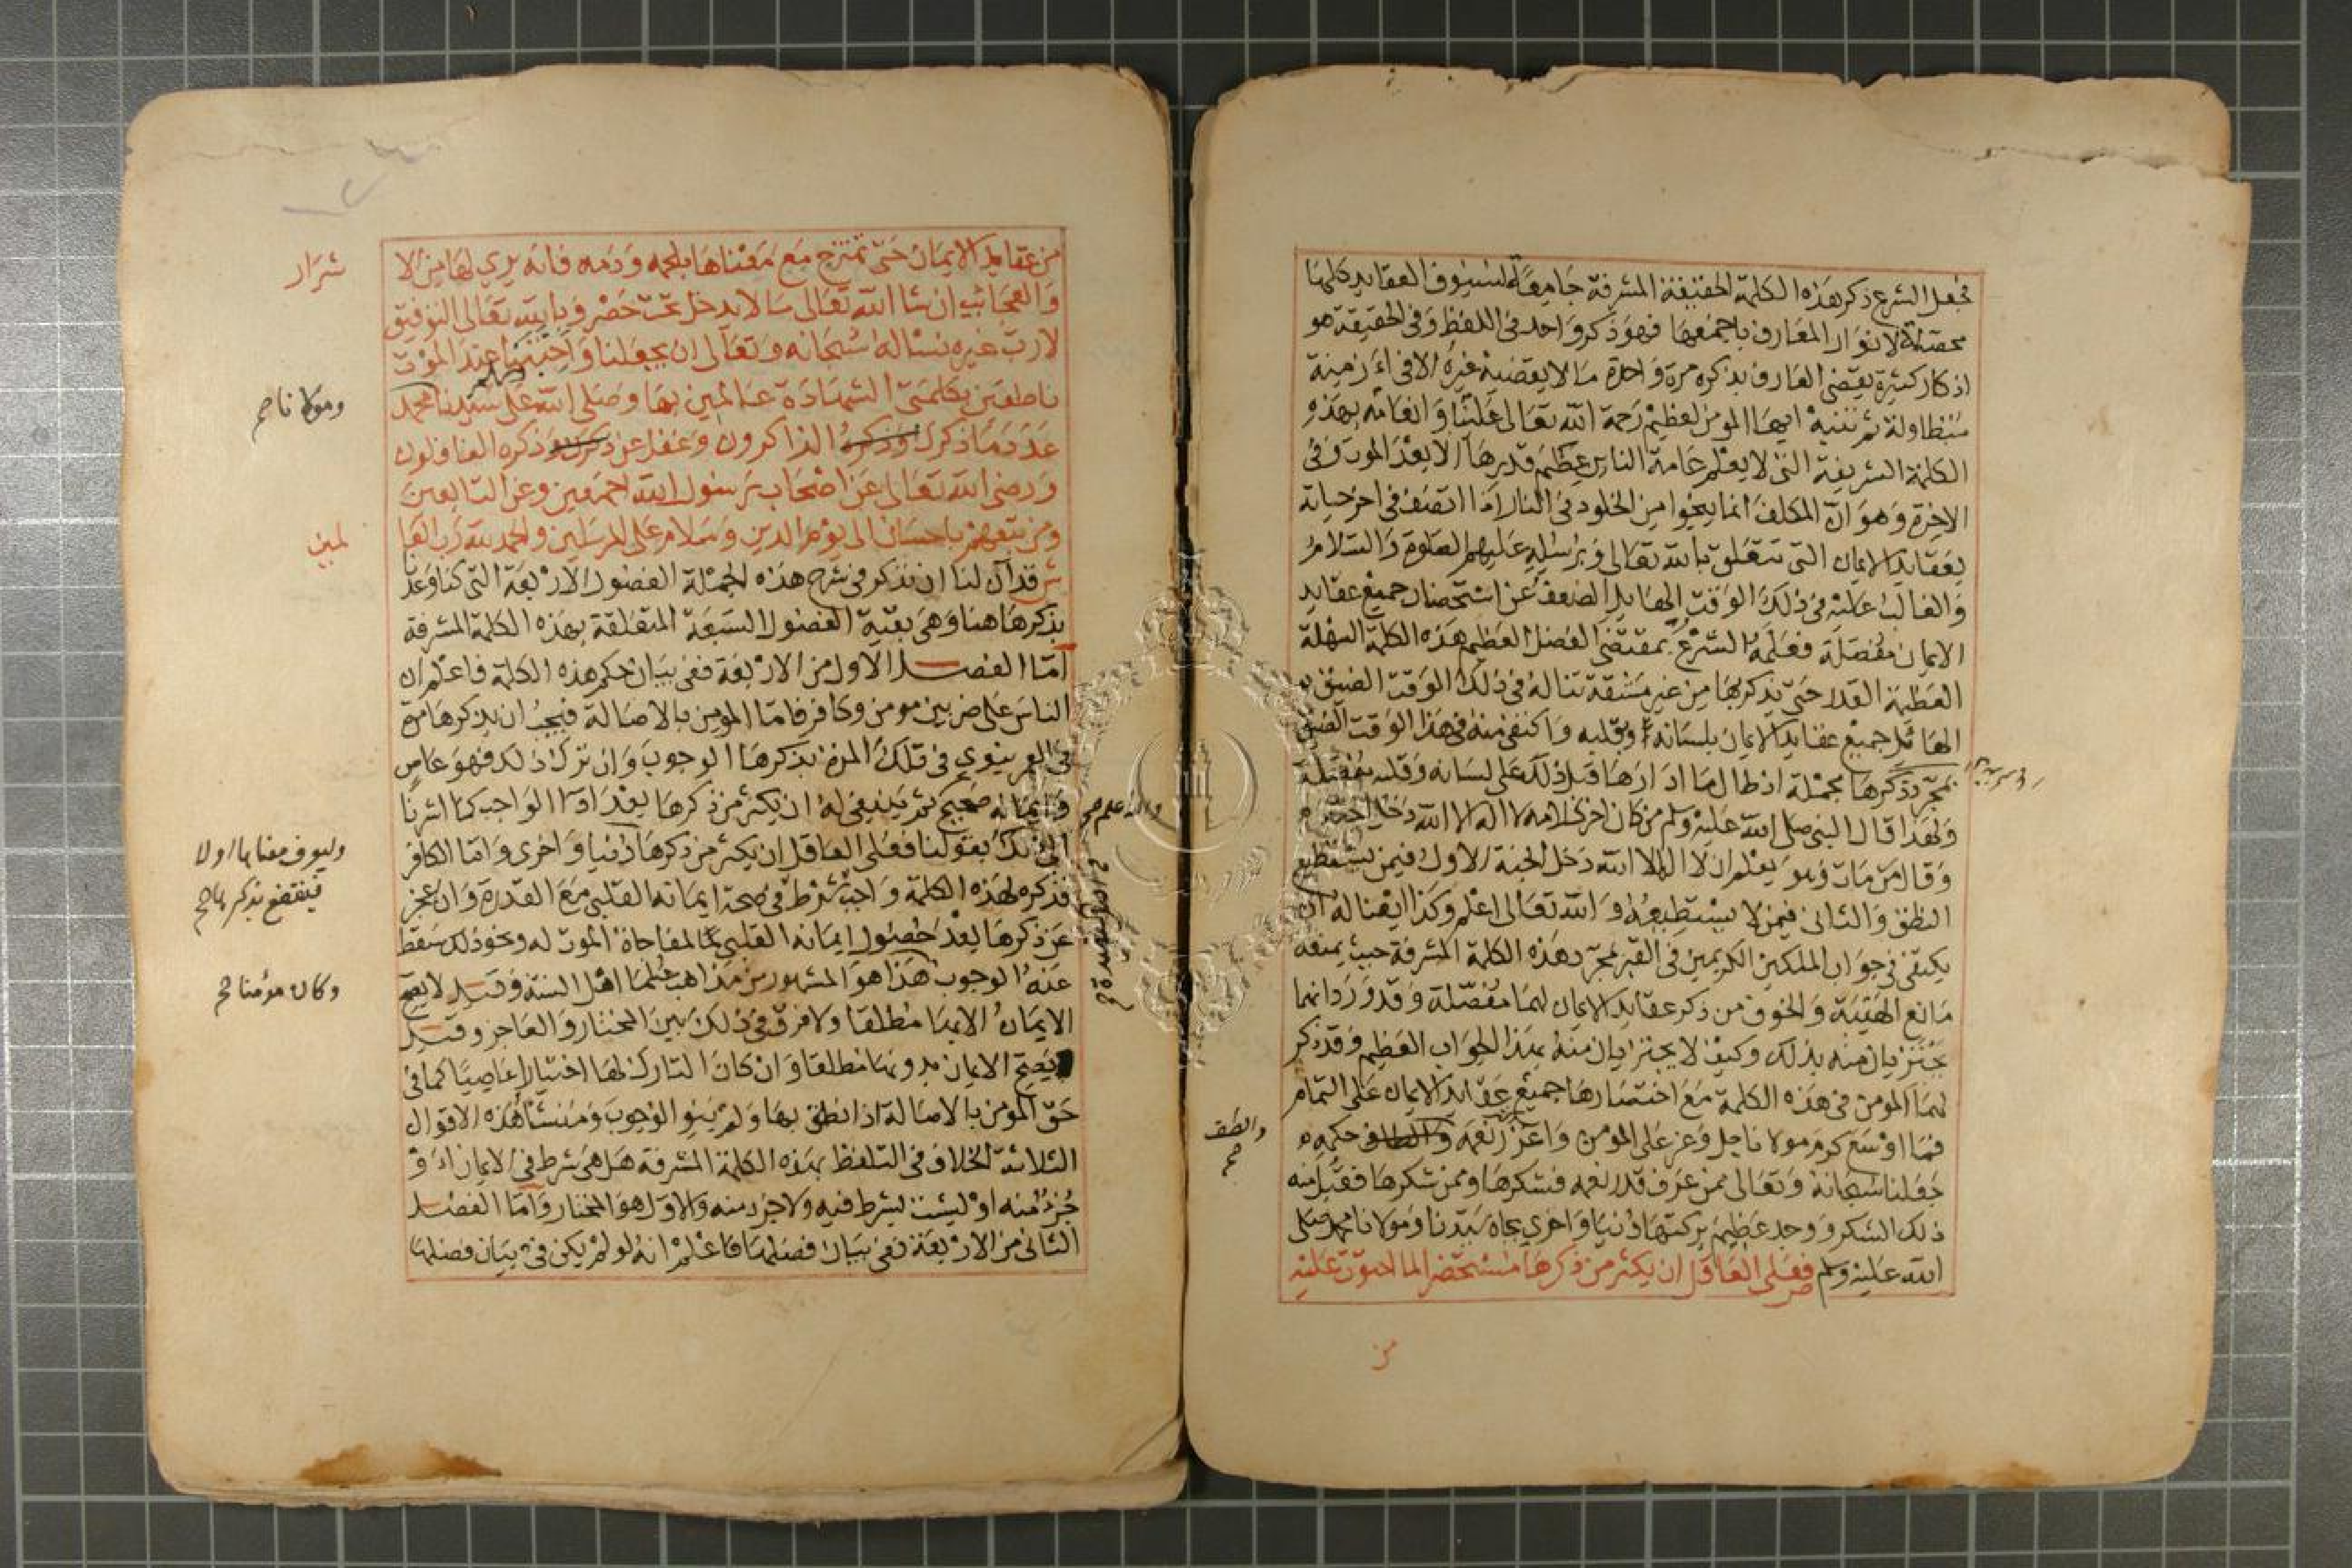 فجعل الشرع ذكر هذه الكلمة الخفيفة المشرفة جامعا لسيوف العقايد كلها
محصلة لانوار المعارف باجمعها فهو ذكر واحد في اللفظ وفي الحقيقة هو
اذكار كثيرة يقضي العارف بذكره مرة واحدة ما لا يقضيه غيره الا في ازمنة
متطاولة ثم تنبه ايها المومن لعظيم رحمة الله تعالى علينا وانعامه بهذه
الكلمة الشريفة التي لا يعلم عامة الناس عظيم قدرها الا بعد الموت وفي
الاخرة وهو ان المكلف انما ينجوا من الخلود في النار اذا اتصف في اخر حياته
بعقايد الايمان التي تتعلق بالله تعالى وبرسله عليهم الصلوة والسلام
والغالب عليه في ذلك الوقت الهايل الضعف عن استحضار جميع عقايد
الايمان مفصلة فعلمه الشرع بمقتضى الفضل العظيم هذه الكلمة السهلة
العظيمة القدر حتى يذكر بها من غير مشقة تناله في ذلك الوقت الضيق
الهايل جميع عقايد الايمان بلسانه وبقلبه واكتفى منه في هذا الوقت الضيق
بمجرد ذكرها مجملة اذ طال ما ادارها قبل ذلك على لسانه وقلبه مفصلة
ولهذا قال النبي صلى الله عليه وسلم من كان اخر كلامه لا اله الا الله دخل الجنة
وقال من مات وهو يعلم ان لا اله الا الله دخل الجنة الاول فيمن يستطيع
النطق والثاني فيمن لا يستطيعه والله تعالى اعلم وكذا ايضا له ان
يكتفي في جواب الملكين الكريمين في القبر بمجرد هذه الكلمة المشرفة حيث يمنعه
مانع الهيبة والخوف من ذكر عقايد الايمان لهما مفصلة وقد ورد انهما
يجتزيان منه بذلك وكيف لا يجتزيان منه بهذا الجواب العظيم وقد ذكر
لهما المومن في هذه الكلمة مع اختصارها جميع عقايد الايمان على التمام
فما اوسع كرم مولانا جل وعز على المومن واغزر نعمه والطف حكمه
والطف
صح
جعلنا سبحانه وتعالى ممن عرف قدر نعمه فشكرها وممن شكرها فقبل منه
ذلك الشكر ووجد عظيم بركتها دنيا واخرى بجاه سيدنا ومولانا محمد صلى
الله عليه وسلم ص فعلى العاقل ان يكثر من ذكرها مستحضرا لما احتوت عليه
من
من عقايد الايمان حتى تمتزج مع معناها بلحمه ودمه فانه يرى لها من الا
سرار
والعجائب ان شا الله تعالى ما لا يدخل تحت حصر وبالله تعالى التوفيق
لا رب غيره نساله سبحانه وتعالى ان يجعلنا واحبتنا عند الموت
ناطقين بكلمتي الشهادة عالمين بها وصلى الله على سيدنا محمد
ومولانا صح
عدد ما ذكرك وذكره الذاكرون وغفل عن ذكرك وذكره الغافلون
ورضي الله تعالى عن اصحاب رسول الله اجمعين وعن التابعين
ومن تبعهم باحسان الى يوم الدين وسلام على المرسلين والحمد لله رب العا
لمين
ش قد ان لنا ان نذكر في شرح هذه الجملة الفصول الاربعة التي كنا وعدنا
بذكرها هنا وهي بقية الفصول السبعة المتعلقة بهذه الكلمة المشرفة
اما الفصل الاول من الاربعة ففي بيان حكم هذه الكلمة فاعلم ان
الناس على ضربين مومن وكافر فاما المومن بالاصالة فيجب ان يذكرها مرة
في العمر ينوي في تلك المرة بذكرها الوجوب وان ترك ذلك فهو عاص
وايمانه صحيح ثم ينبغي له ان يكثر من ذكرها بعد ادا الواجب كما اشرنا
والله اعلم صح
الى ذلك بقولنا فعلى العاقل ان يكثر من ذكرها دنيا واخرى واما الكافر
وليعرف معناها اولا
فينتفع بذكرها صح
فذكره لهذه الكلمة واجب شرط في صحة ايمانه القلبي مع القدرة وان عجز
عن ذكرها بعد حصول ايمانه القلبي لمفاجاة الموت له ونحو ذلك سقط
عنه الوجوب هذا هو المشهور من مذاهب علما اهل السنة وقيل لا يصح
وكان مؤمنا صح
الايمان الا بها مطلقا ولا فرق في ذلك بين المختار والعاجز وقيل
يصح الايمان بدونها مطلقا وان كان التارك لها اختيارا عاصيا كما في
حق المومن بالاصالة اذا نطق بها ولم ينو الوجوب ومنشأ هذه الاقوال
الثلاثة الخلاف في التلفظ بهذه الكلمة المشرفة هل هي شرط في الايمان او
جزء منه او ليست بشرط فيه ولا جزء منه والاول هو المختار واما الفصل
الثاني من الاربعة ففي بيان فضلها فاعلم انه لو لم يكن في بيان فضلها